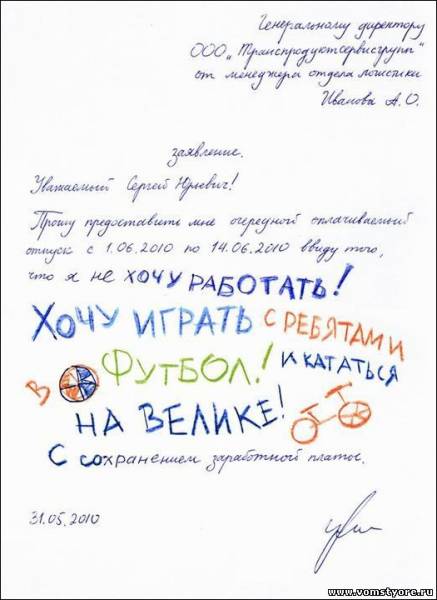 Генеральному директору
ООО „Транспродуктсервисгрупп"
от менеджера отдела логистики
Иванова А.О.
заявление.
Уважаемый Сергей Юрьевич!
Прошу предоставить мне очередной оплачиваемый
отпуск с 1.06.2010 по 14.06.2010 ввиду того,
что я не ХОЧУ РАБОТАТЬ!
ХОЧУ ИГРАТЬ С РЕБЯТАМИ
В ФУТБОЛ! И КАТАТЬСЯ
НА ВЕЛИКЕ!
С сохранением заработной платы.
31.05.2010
www.vomstyore.ru